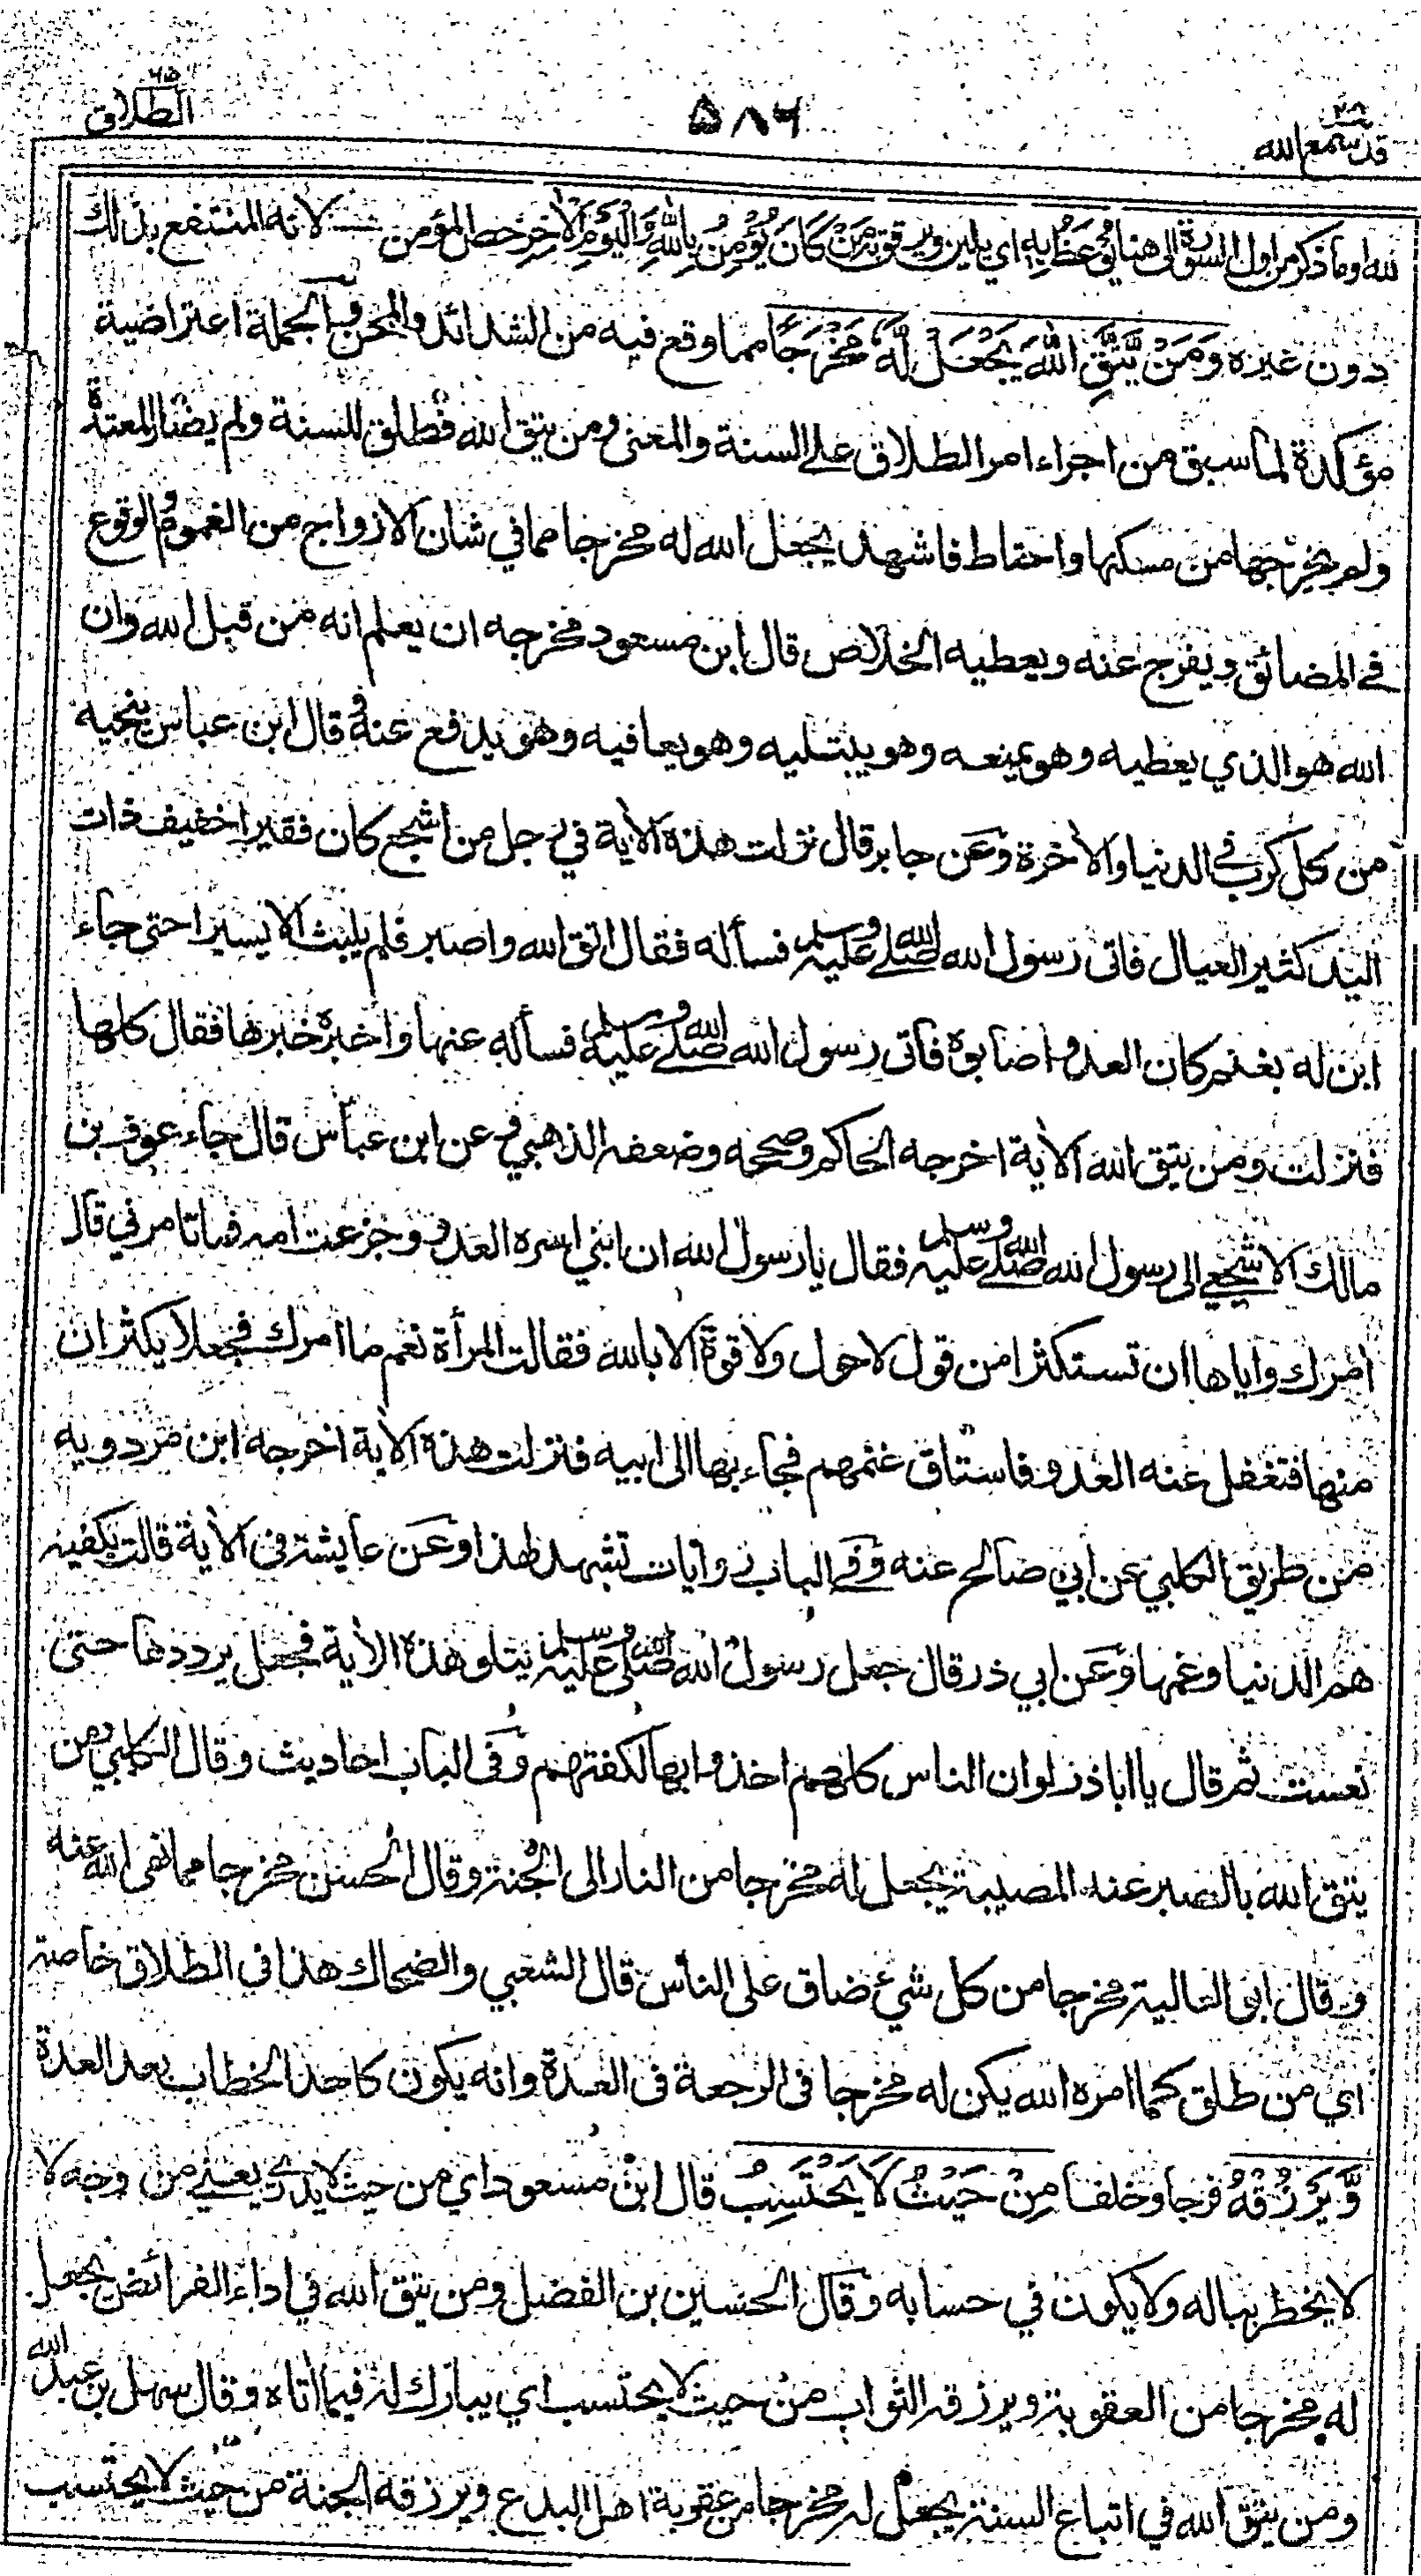 قد سمع الله ٢٨
٥٨٦
الطلاق ٦٥
لله او ما ذكر من اول السورة الى هنا يُوْعَظُ بِهٖ اي يلين ويرق به مَنْ كَانَ يُؤْمِنُ بِاللّٰهِ وَالْيَوْمِ الْاٰخِرِ خص المؤمن لانه المنتفع بذلك
دون غيره وَمَنْ يَّتَّقِ اللّٰهَ يَجْعَلْ لَّهٗ مَخْرَجًا مما وقع فيه من الشدائد والمحن والجملة اعتراضية
مؤكدة لما سبق من اجراء امر الطلاق على السنة والمعنى ومن يتق الله فطلق للسنة ولم يضار المعتدة
ولم يخرجها من مسكنها واحتاط فاشهد يجعل الله له مخرجا مما في شان الازواج من الغموم والوقوع
في المضائق ويفرج عنه ويعطيه الخلاص قال ابن مسعود مخرجه ان يعلم انه من قبل الله وان
الله هو الذي يعطيه وهو يمنعه وهو يبتليه وهو يعافيه وهو يدفع عنه وقال ابن عباس ينجيه
من كل كرب في الدنيا والاخرة وعن جابر قال نزلت هذه الاية في رجل من اشجع كان فقيرا خفيف ذات
اليد كثير العيال فاتى رسول الله صلى الله عليه وسلم فسأله فقال اتق الله واصبر فلم يلبث الا يسيرا حتى جاء
ابن له بغنم كان العدو اصابوه فأتى رسول الله صلى الله عليه وسلم فسأله عنها واخبره خبرها فقال كلها
فنزلت ومن يتق الله الاية اخرجه الحاكم وصححه وضعفه الذهبي وعن ابن عباس قال جاء عوف بن
مالك الاشجعي الى رسول الله صلى الله عليه وسلم فقال يا رسول الله ان ابني اسره العدو وجزعت امه فما تامرني قال
امرك واياها ان تستكثرا من قول لا حول ولا قوة الا بالله فقالت المرأة نعم ما امرك فجعلا يكثران
منها فتغفل عنه العدو فاستاق غنمهم فجاء بها الى ابيه فنزلت هذه الاية اخرجه ابن مردويه
من طريق الكلبي عن ابي صالح عنه وفي الباب روايات تشهد لهذا وعن عايشة في الاية قالت يكفيه
هم الدنيا وغمها وعن ابي ذر قال جعل رسول الله صلى الله عليه وسلم يتلو هذه الاية فجعل يرددها حتى
نعست ثم قال يا اباذر لو ان الناس كلهم اخذوا بها لكفتهم وفي الباب احاديث وقال الكلبي ومن
يتق الله بالصبر عند المصيبة يجعل له مخرجا من النار الى الجنة وقال الحسن مخرجا مما نهى الله عنه
وقال ابو العالية مخرجا من كل شئ ضاق على الناس قال الشعبي والضحاك هذا في الطلاق خاصة
اي من طلق كما امره الله يكن له مخرجا في الرجعة في العدة وانه يكون كاحد الخطاب بعد العدة
وَّيَرْزُقْهُ فرجا وخلفا مِنْ حَيْثُ لَا يَحْتَسِبُ قال ابن مسعود اي من حيث لا يدري يعني من وجه لا
لا يخطر بباله ولا يكون في حسابه وقال الحسين بن الفضل ومن يتق الله في اداء الفرائض يجعل
له مخرجا من العقوبة ويرزقه الثواب من حيث لا يحتسب اي يبارك له فيما اتاه وقال سهل بن عبد الله
ومن يتق الله في اتباع السنة يجعل له مخرجا من عقوبة اهل البدع ويرزقه الجنة من حيث لا يحتسب